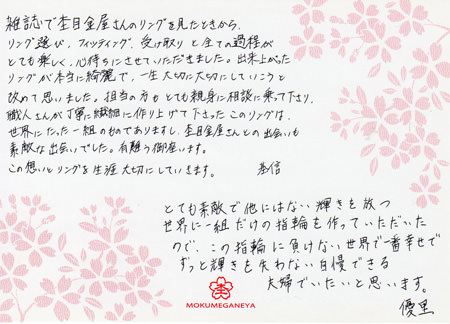 雑誌で杢目金屋さんのリングを見たときから、
リング選び、フィッティング、受け取り と全ての過程が
とても楽しく、心待ちにさせていただきました。出来上がった
リングが本当に綺麗で、一生大切に大切にしていこうと
改めて思いました。担当の方も とても親身に相談に乗って下さり、
職人さんが丁寧に繊細に作り上げて下さった このリングは、
世界にたった一組のものでありますし、杢目金屋さんとの出会いも
素敵な出会いでした。有難う御座います。
この想いとリングを生涯大切にしていきます。
とても素敵で他にはない輝きを放つ
世界に一組だけの指輪を作っていただいた
ので、この指輪に負けない世界で一番幸せで
ずっと輝きを失わない自慢できる
夫婦でいたいと思います。
優里
MOKUMEGANEYA